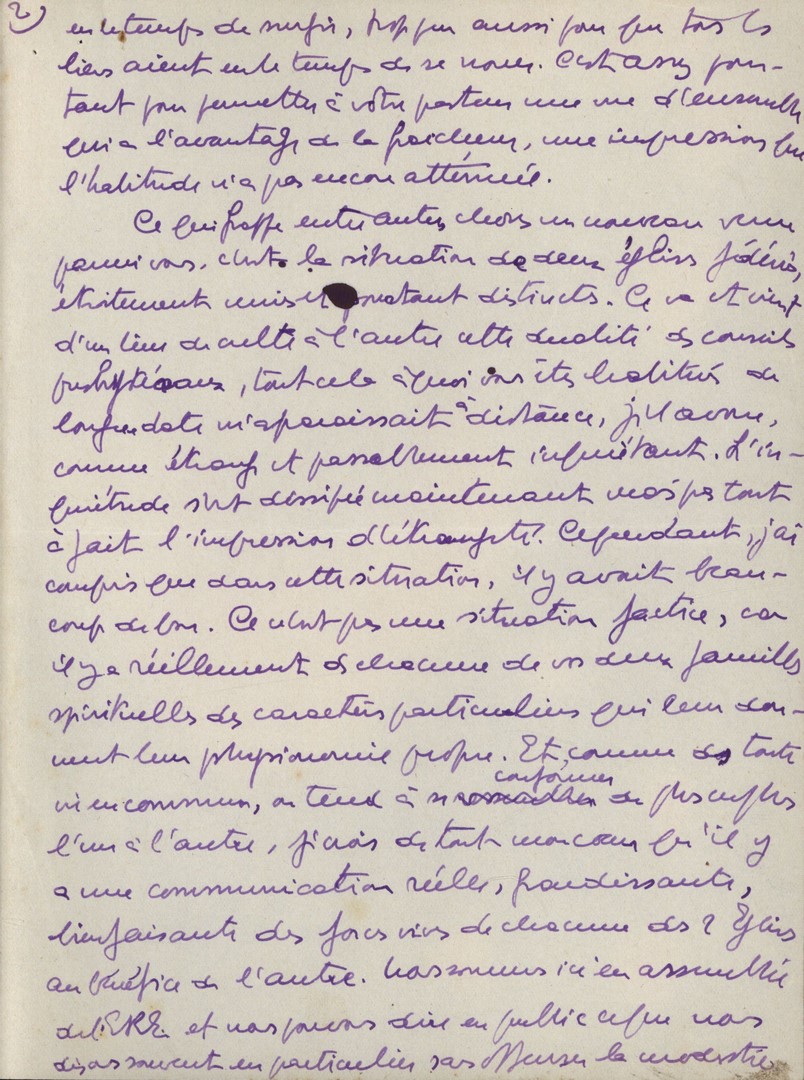 2)
eu le temps de surgir, trop peu aussi pour que tous les
liens aient eu le temps de se nouer. C'est assez pour-
tant pour permettre à votre pasteur une vue d'ensemble
qui a l'avantage de la fraicheur, une impression que
l'habitude n'a pas encore atténuée.
Ce qui frappe entre autres choses un nouveau venu
parmi vous, c'est la situation de deux églises fédérées,
étroitement unies et pourtant distinctes. Ce va et vient
d'un lieu de culte à l'autre cette dualité de conseils
presbytéraux, tout cela à quoi vous êtes habitués de
longue date m'apparaissait à distance, je l'avoue,
comme étrange et passablement inquiétant. L'in-
quiétude s'est dissipée maintenant mais pas tout
à fait l'impression d'étrangeté. Cependant, j'ai
compris que dans cette situation, il y avait beau-
coup de bon. Ce n'est pas une situation factice, car
il y a réellement de chacune de vos deux familles
spirituelles des caractères particuliers qui leur don-
nent leur physionomie propre. Et, comme de toute
vie en commun, on tend à se conformer de plus en plus
l'un à l'autre, je crois de tout mon cœur qu'il y
a une communication réelle, grandissante,
bienfaisante des forces vives de chacune des 2 Eglises
au bénéfice de l'autre. Nous sommes ici en assemblée
de l'ERE et nous pouvons dire en public ce que nous
disons souvent en particulier sans offenser la modestie